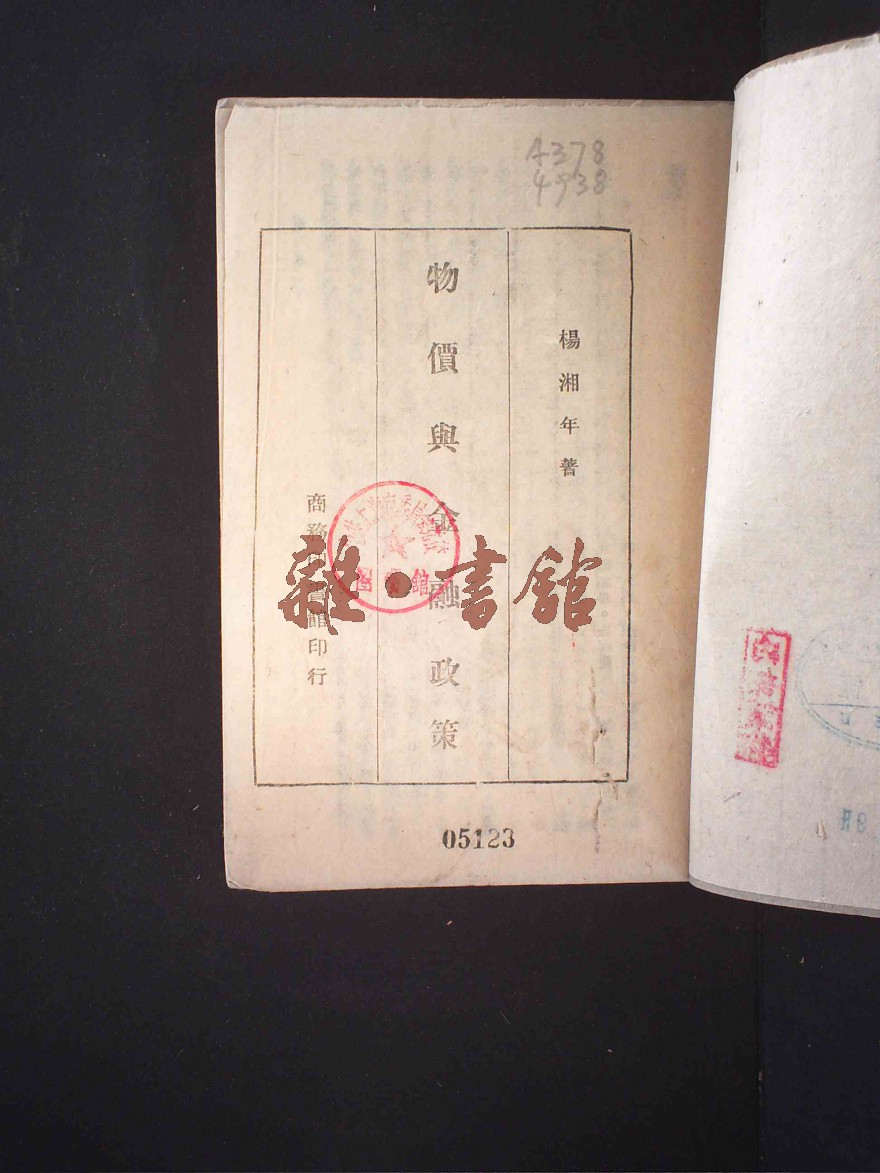 A378
4938
楊湘年著
物價與金融政策
商務印書館印行
雜·書館
05123